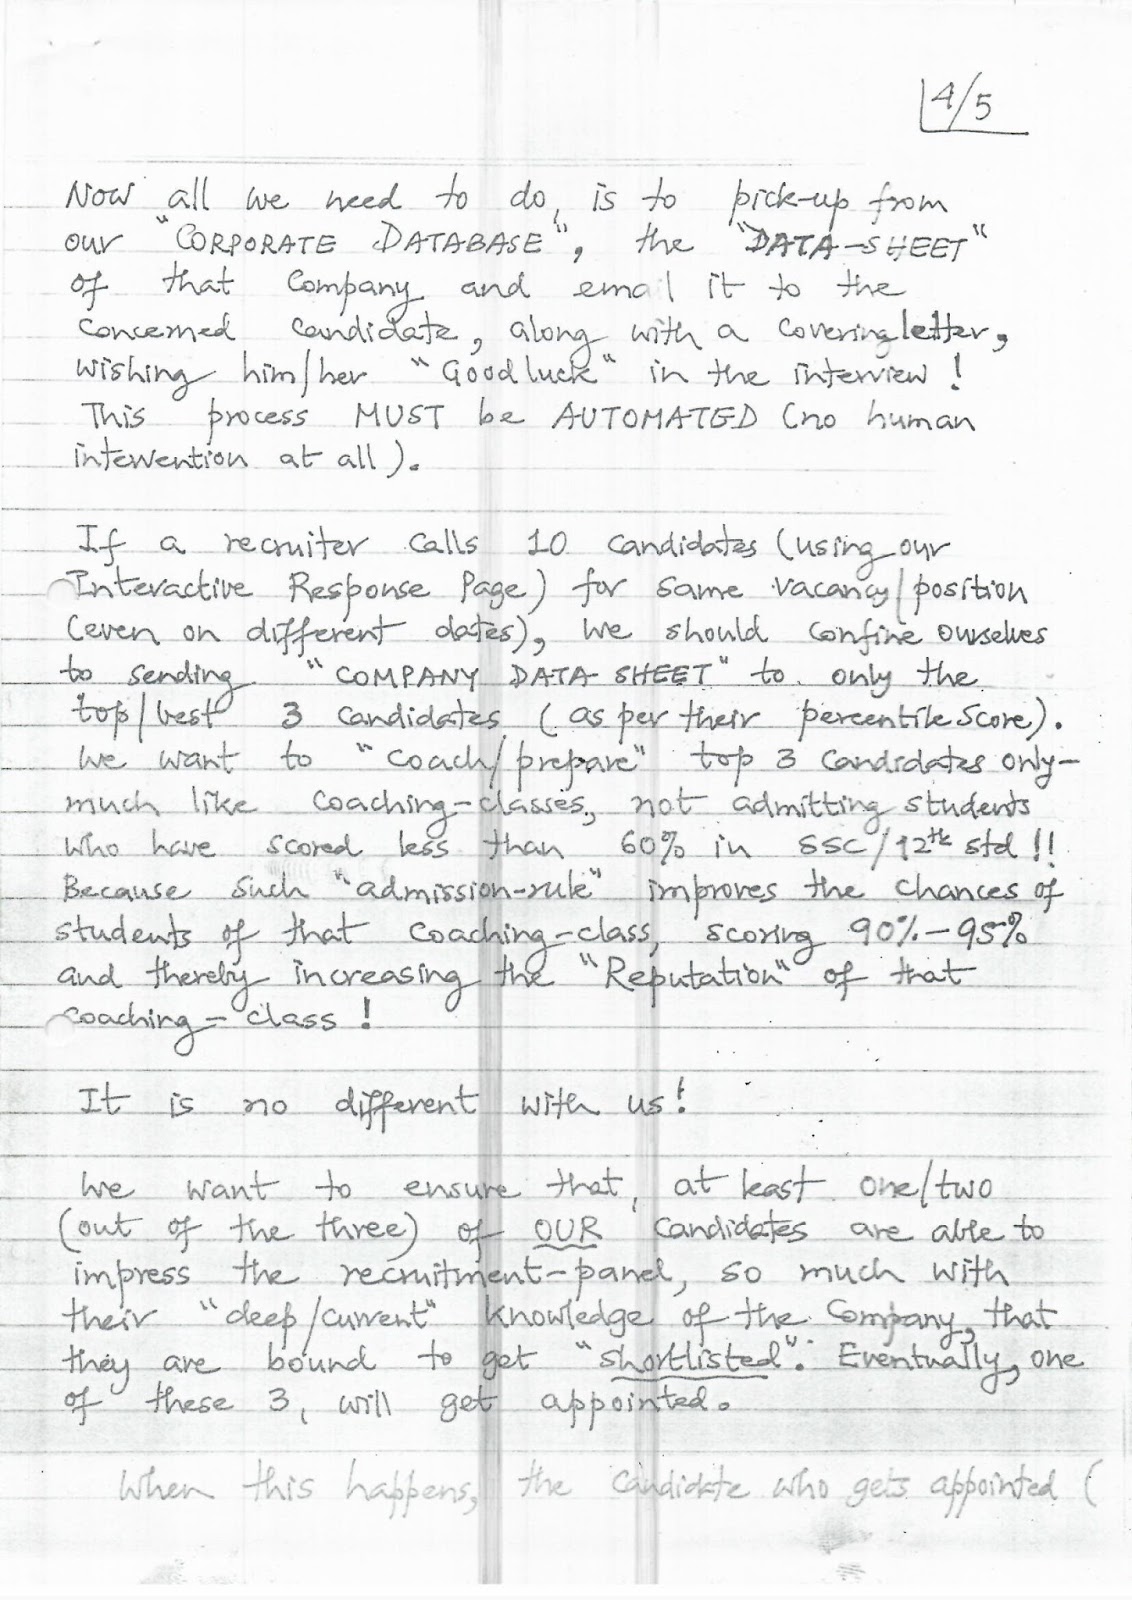 4/5
Now all we need to do, is to pick-up from
our "CORPORATE DATABASE", the "DATA-SHEET"
of that Company and email it to the
concerned candidate, along with a covering letter,
wishing him/her "Good luck" in the interview!
This process MUST be AUTOMATED (no human
intervention at all).
If a recruiter calls 10 candidates (using our
Interactive Response Page) for same vacancy/position
(even on different dates), we should confine ourselves
to sending "COMPANY DATA SHEET" to only the
top/best 3 candidates (as per their percentile score).
We want to "coach/prepare" top 3 candidates only-
much like coaching-classes, not admitting students
who have scored less than 60% in SSC/12th std!!
Because such "admission-rule" improves the chances of
students of that coaching-class, scoring 90%-95%
and thereby increasing the "Reputation" of that
coaching-class!
It is no different with us!
We want to ensure that, at least one/two
(out of the three) of OUR candidates are able to
impress the recruitment-panel, so much with
their "deep/current" knowledge of the Company, that
they are bound to get "shortlisted". Eventually, one
of these 3, will get appointed.
When this happens, the candidate who gets appointed (